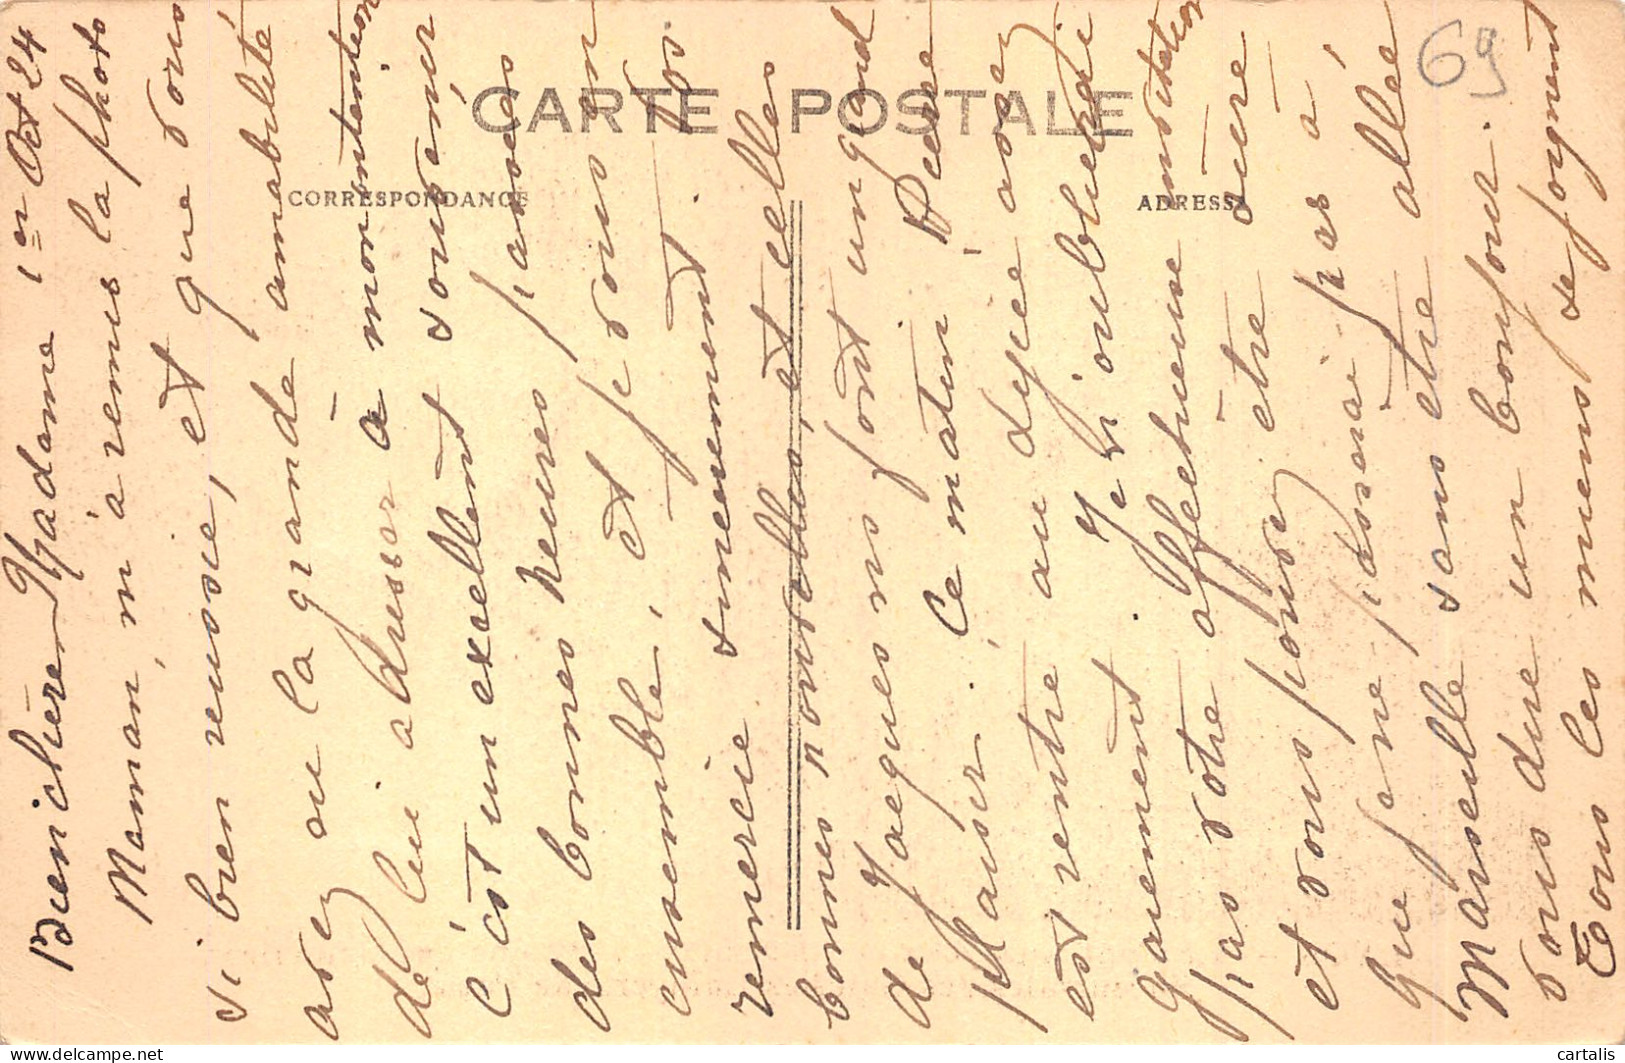 CARTE POSTALE
CORRESPONDANCE
ADRESSE
69
1er Oct 24
Madame
Maman, m'a remis la photo
si bien reussie, et que vous
avez eu la grande amabilité
de lui adresser à mon intention
C'est un excellent souvenir
des bonnes heures passées
ensemble, et je vous en
remercie sincerement. Vos
bonnes nouvelles, et celles
de Jacques m'font un grand
plaisir. Ce matin Pierre
est rentré au lycée assez
gaiement. Je n'oublierai
pas votre affectueuse invitation
et vous pouvez être sûre
que je ne passerai pas à
Marseille sans être allée
vous dire un bonjour.
Tous les miens se joignent
cartalis